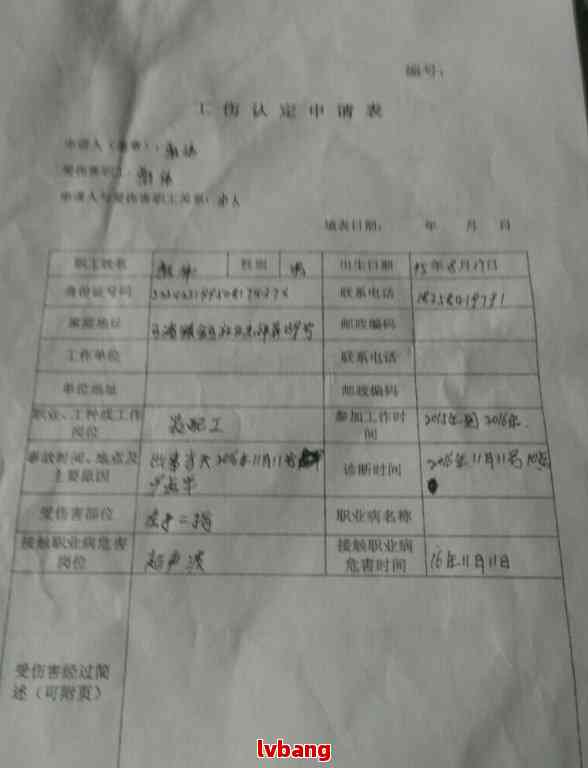 编号：
工伤认定申请表
申请人（盖章）：
受伤害职工：
申请人与受伤害职工关系：本人
填表日期： 年 月 日
职工姓名 性别 男 出生日期 95年8月17日
身份证号码 联系电话 18258019791
家庭地址 邮政编码
工作单位 联系电话
单位地址 邮政编码
职业、工种或工作岗位 装配工 参加工作时间 2015年到2016年.
事故时间、地点及主要原因 出事当天2016年11月11号 诊断时间 2016年11月11号
受伤害部位 左手二指 职业病名称
接触职业病危害岗位 超声波 接触职业病危害时间 16年11月11日
受伤害经过简述（可附页）
lvbang